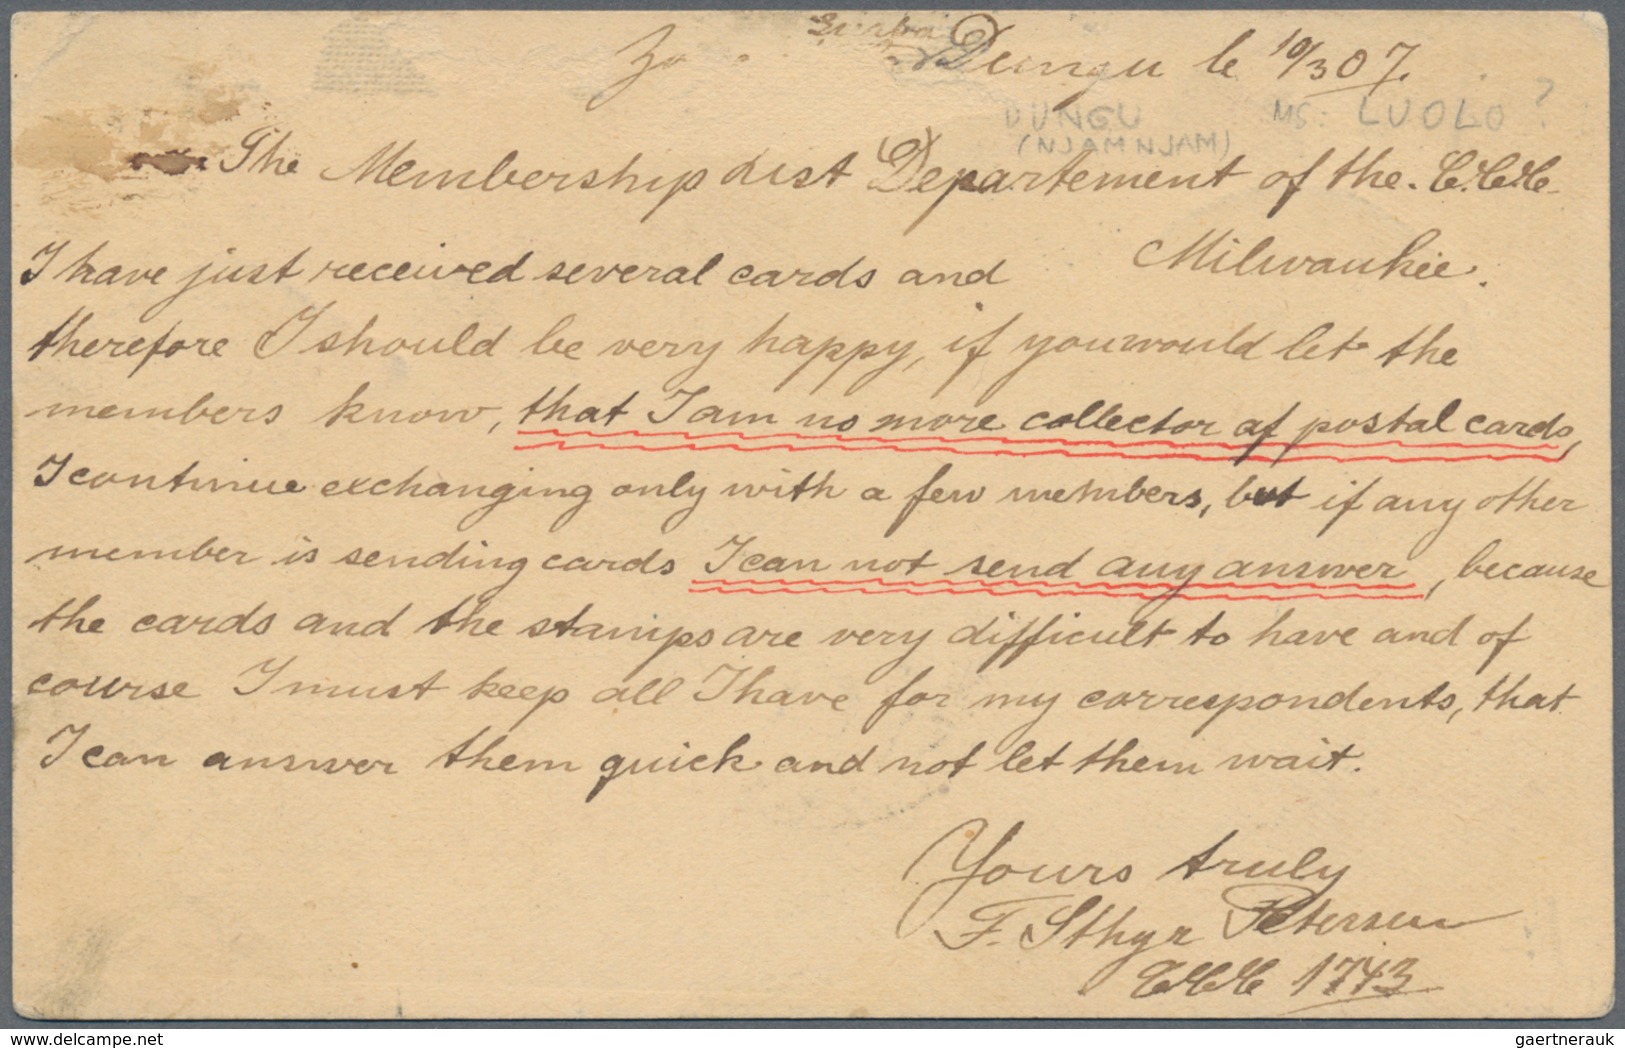 Dungu le 10/3 07.
DUNGU MS: LUOLO ?
(NJAM NJAM)
The Membership List Departement of the C.C.C.
Milwaukee.
I have just received several cards and
therefore I should be very happy, if you would let the
members know, that I am no more collector of postal cards,
I continue exchanging only with a few members, but if any other
member is sending cards I can not send any answer, because
the cards and the stamps are very difficult to have and of
course I must keep all I have for my correspondents, that
I can answer them quick and not let them wait.
Yours truly
F. Sthyr Petersen
CCC 1743
gaertnerauk